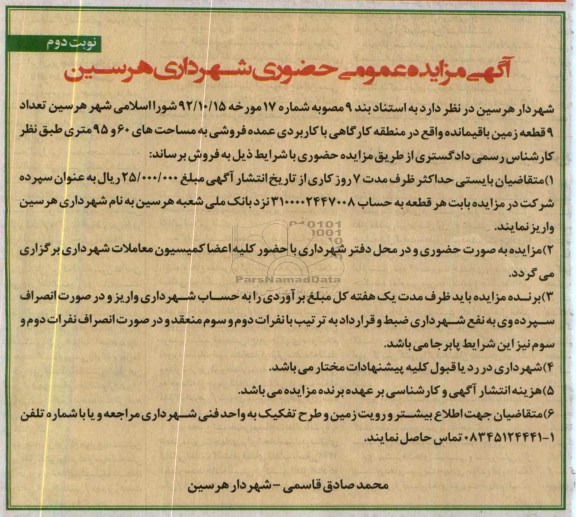 نوبت دوم
آگهی مزایده عمومی حضوری شهرداری هرسین
شهردار هرسین در نظر دارد به استناد بند ۹ مصوبه شماره ۱۷ مورخه ۹۲/۱۰/۱۵ شورا اسلامی شهر هرسین تعداد
۹ قطعه زمین باقیمانده واقع در منطقه کارگاهی با کاربردی عمده فروشی به مساحت های ۶۰ و ۹۵ متری طبق نظر
کارشناس رسمی دادگستری از طریق مزایده حضوری با شرایط ذیل به فروش برساند:
۱)متقاضیان بایستی حداکثر ظرف مدت ۷ روز کاری از تاریخ انتشار آگهی مبلغ ۲۵/۰۰۰/۰۰۰ ریال به عنوان سپرده
شرکت در مزایده بابت هر قطعه به حساب ۳۱۰۰۰۰۲۴۴۷۰۰۸ نزد بانک ملی شعبه هرسین به نام شهرداری هرسین
واریز نمایند.
۲)مزایده به صورت حضوری و در محل دفتر شهرداری با حضور کلیه اعضا کمیسیون معاملات شهرداری برگزاری
می گردد.
ParsNamadData
۳)برنده مزایده باید ظرف مدت یک هفته کل مبلغ برآوردی را به حساب شهرداری واریز و در صورت انصراف
سپرده وی به نفع شهرداری ضبط و قرارداد به ترتیب با نفرات دوم و سوم منعقد و در صورت انصراف نفرات دوم و
سوم نیز این شرایط پابرجا می باشد.
۴)شهرداری در رد یا قبول کلیه پیشنهادات مختار می باشد.
۵)هزینه انتشار آگهی و کارشناسی بر عهده برنده مزایده می باشد.
۶)متقاضیان جهت اطلاع بیشتر و رویت زمین و طرح تفکیک به واحد فنی شهرداری مراجعه و یا با شماره تلفن
۰۸۳۴۵۱۲۴۴۴۱-۱ تماس حاصل نمایند.
محمد صادق قاسمی - شهردار هرسین